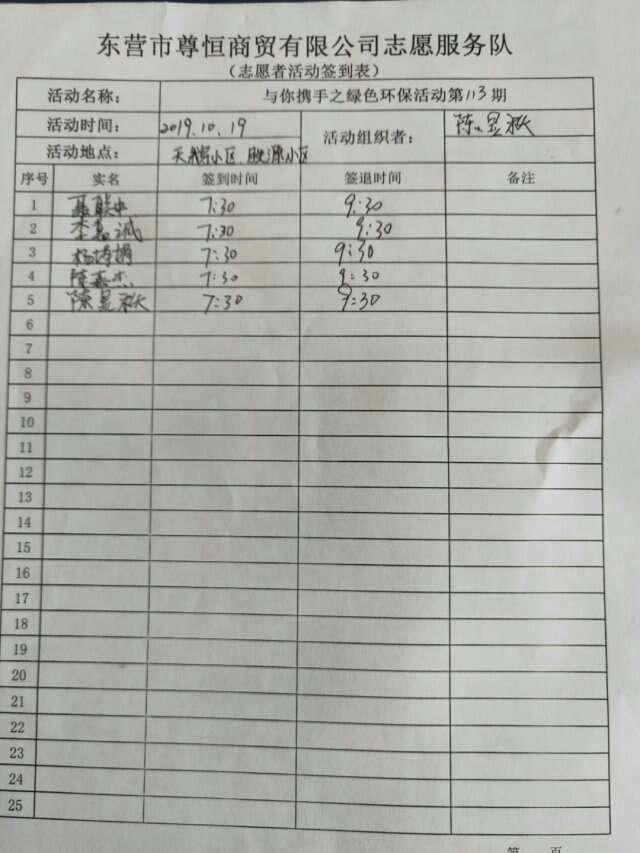 东营市尊恒商贸有限公司志愿服务队
（志愿者活动签到表）
活动名称： 与你携手之绿色环保活动第113期
活动时间： 2019.10.19 活动组织者： 陈昱
活动地点： 小区 小区
序号 实名 签到时间 签退时间 备注
1 7:30 9:30
2 李嘉诚 7:30 9:30
3 杨 7:30 9:30
4 杰 7:30 9:30
5 陈昱 7:30 9:30
6
7
8
9
10
11
12
13
14
15
16
17
18
19
20
21
22
23
24
25
第 页